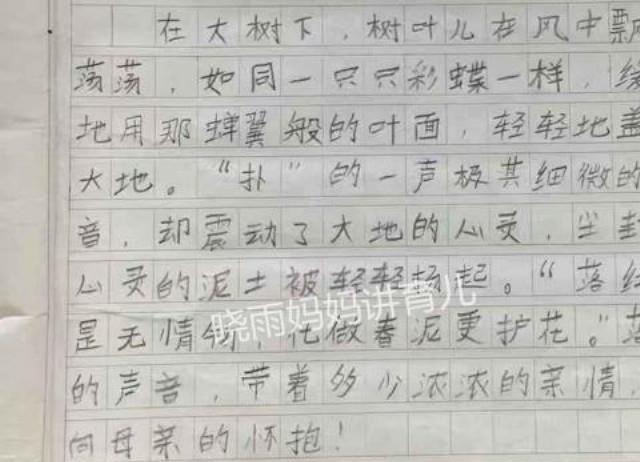 在大树下，树叶儿在风中飘
荡荡，如同一只只彩蝶一样，缓
地用那蝉翼般的叶面，轻轻地盖
大地。“扑”的一声极其细微的
音，却震动了大地的心灵，尘封
心灵的泥土被轻轻扬起。“落红
是无情物，化做春泥更护花。”落
的声音，带着多少浓浓的亲情，
向母亲的怀抱！
晓雨妈妈讲育儿